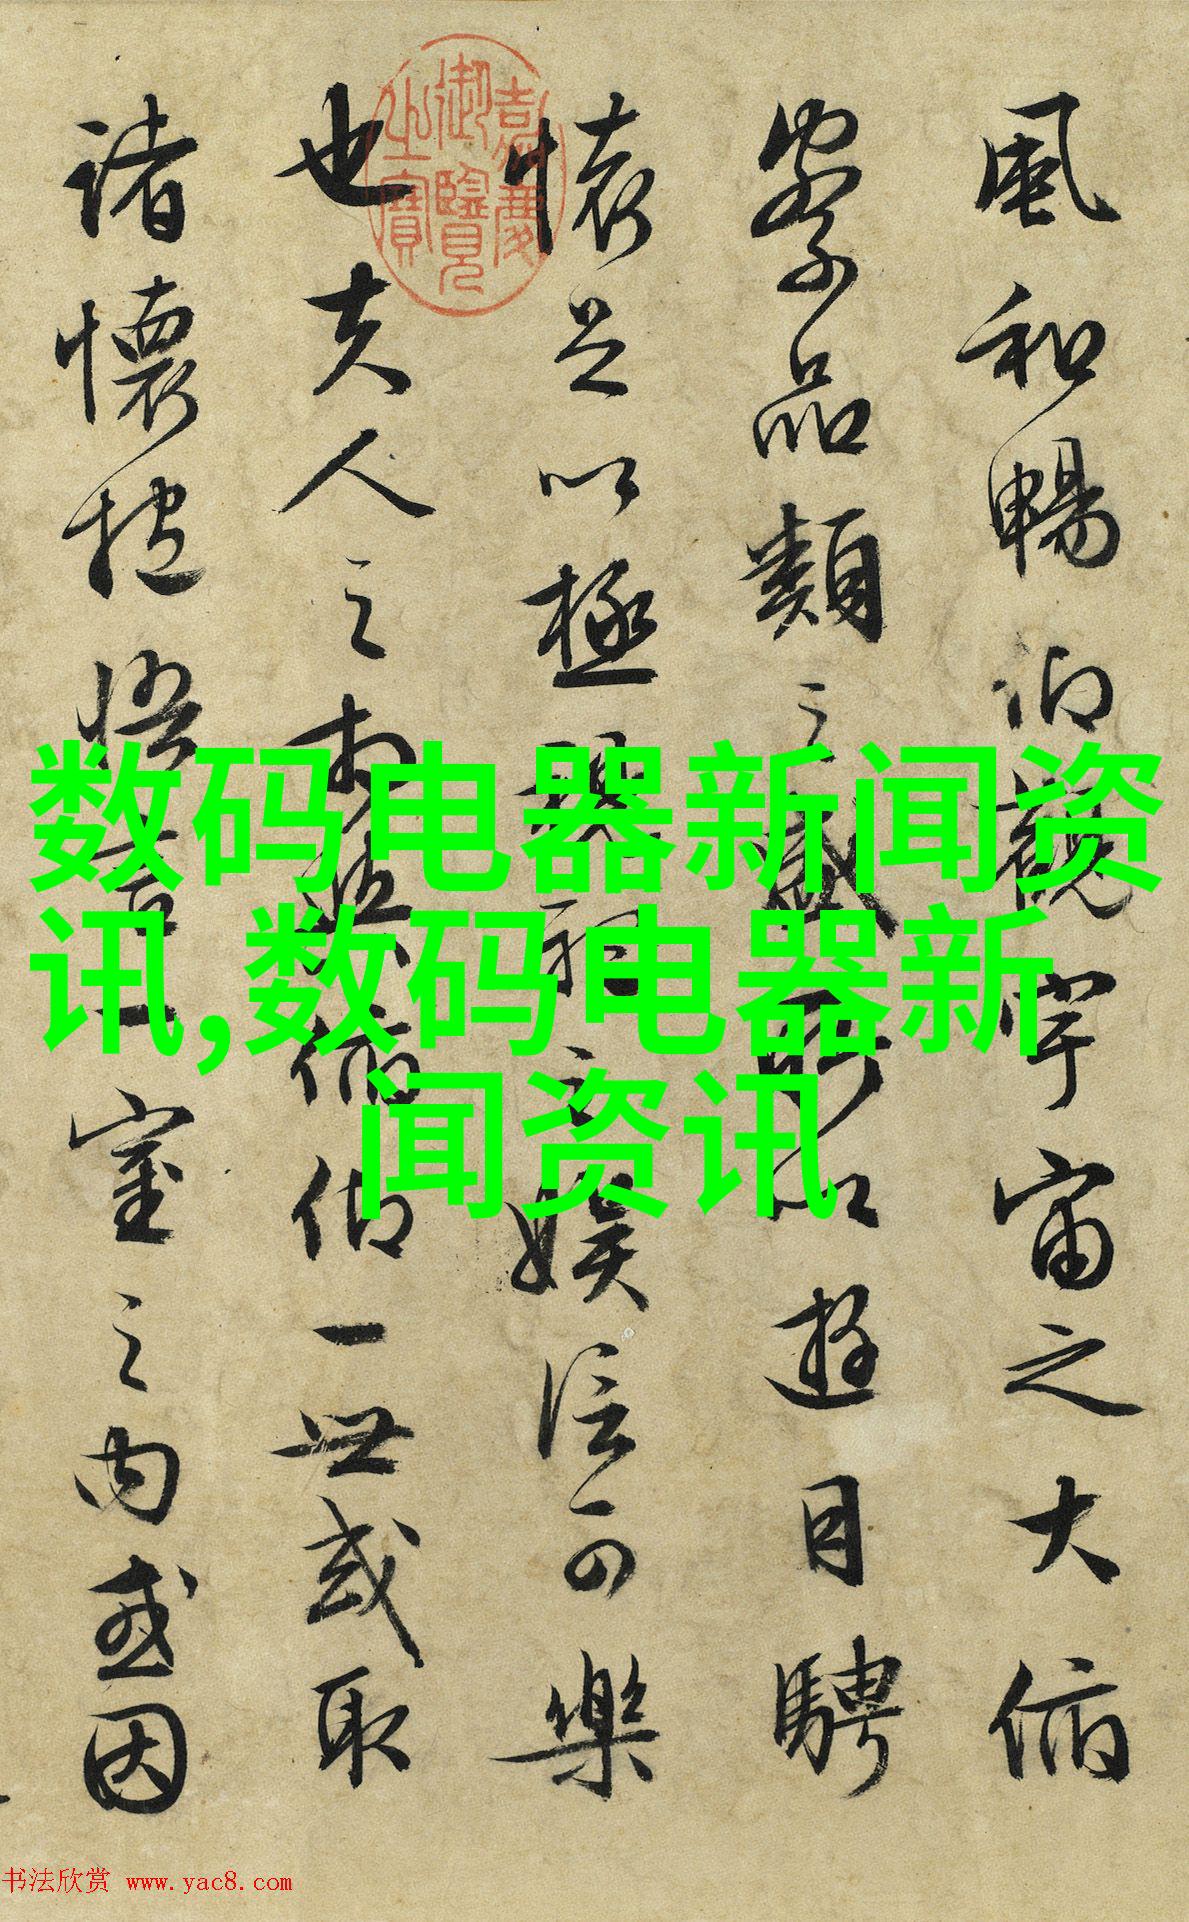 風和暢仰觀宇宙之大俯
察品類之盛所以遊目騁
懷足以極視聽之娛信可樂
也夫人之相與俯仰一世或取
諸懷抱悟言一室之內或因
嘉慶
御覽
之寶
数码电器新闻资
讯,数码电器新
闻资讯
书法欣赏 www.yac8.com